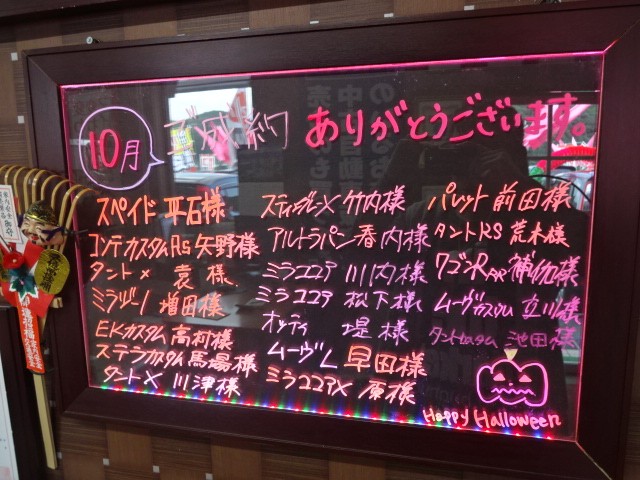 10月
ご成約 ありがとうございます。
スペイド 平石様
コンテカスタムRS 矢野様
タント× 袁様
ミラジーノ 増田様
EKカスタム 高村様
ステラカスタム 馬場様
タントX 川津様
スティングレーX 竹内様
アルトラパン 春内様
ミラココア 川内様
ミラココア 松下様
オッティ 堤様
ムーヴL 早田様
ミラココアX 原様
パレット 前田様
タントRS 荒木様
ワゴンR 様
ムーヴカスタム 立川様
タントカスタム 池田様
Happy Halloween